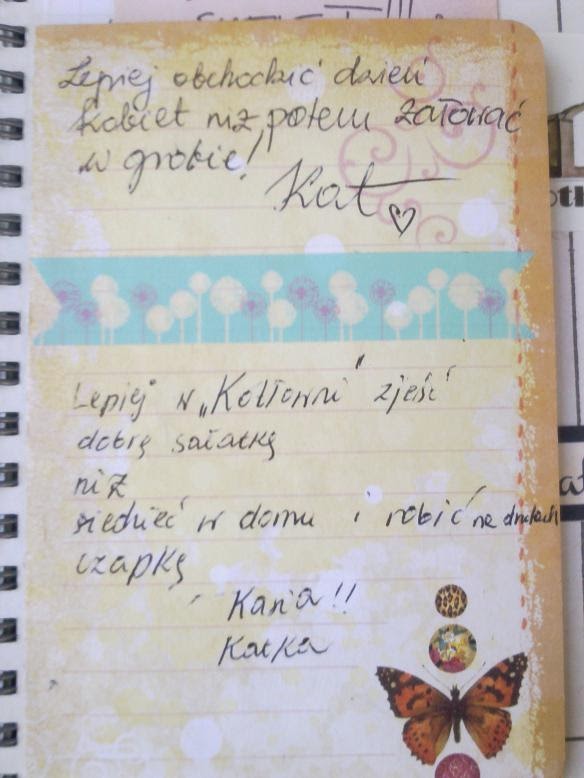 Lepiej obchodzić dzień
kobiet niż potem żałować
w grobie!
Kat
Lepiej w „Kotłowni" zjeść
dobrą sałatkę
niż
siedzieć w domu i robić na drutach
czapkę
Kania!!
Katka